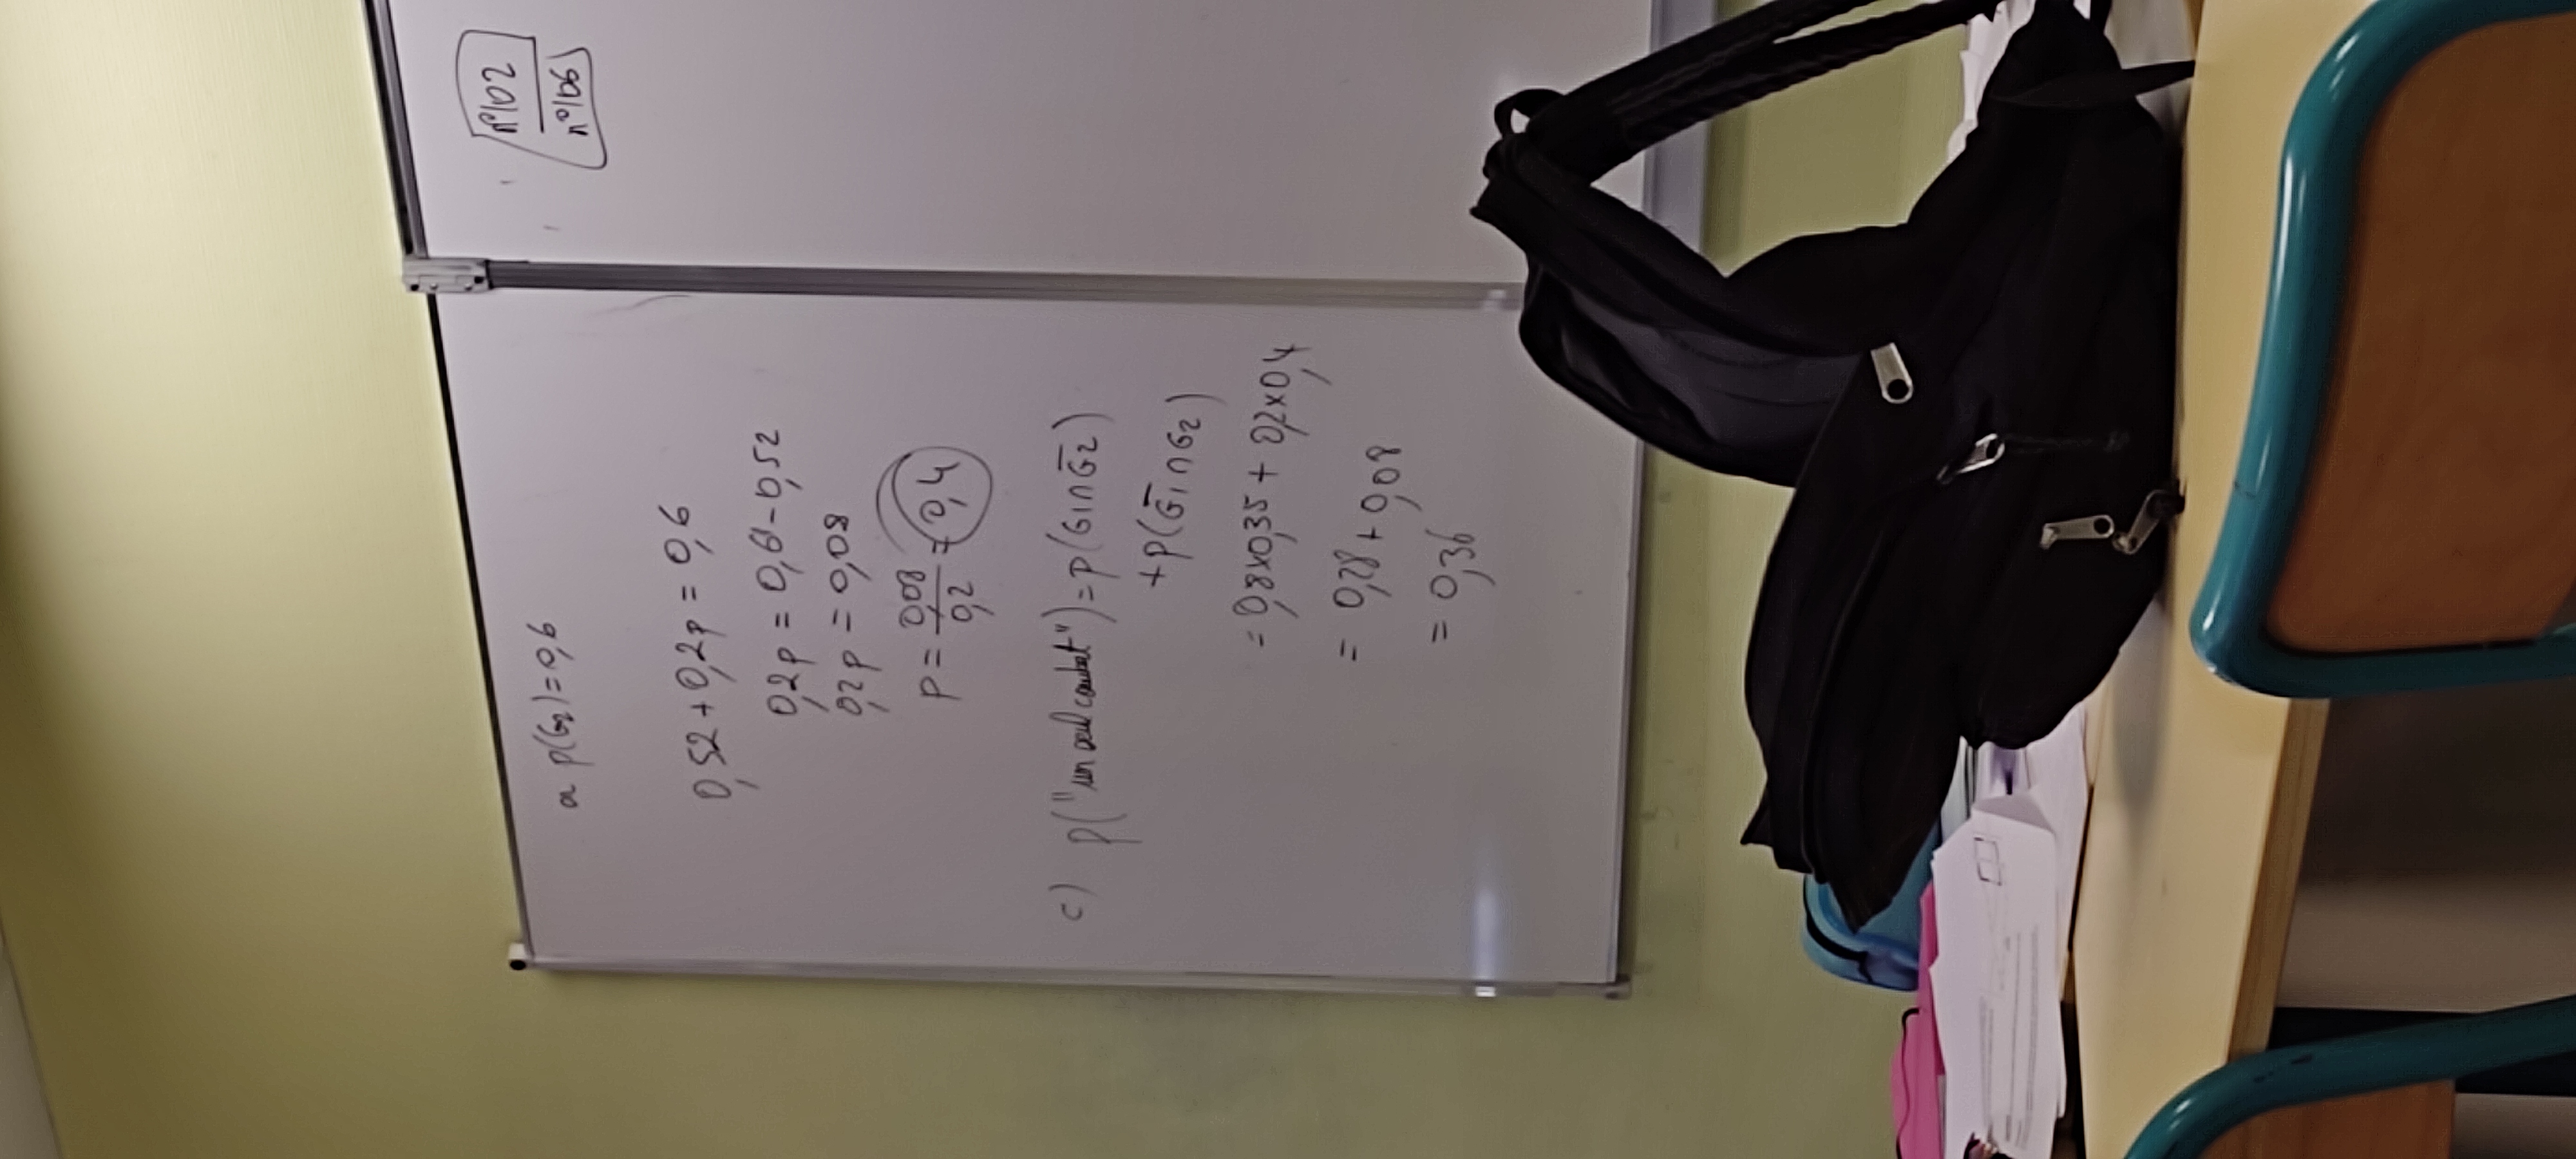 a p(G2)=0,6
0,52+0,2p = 0,6
0,2p = 0,6-0,52
0,2p = 0,08
p = 0,08/0,2 = 0,4
c) p("un seul combat") = p(G1∩G̅2)
+p(G̅1∩G2)
= 0,8×0,35 + 0,2×0,4
= 0,28+0,08
= 0,36
n°102
n°106